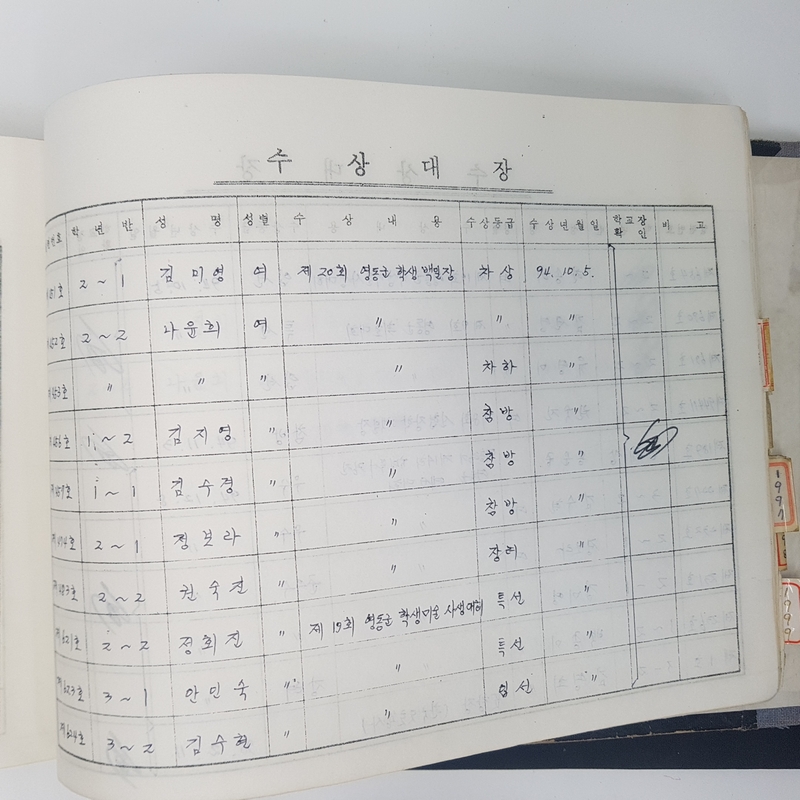 수 상 대 장
번호 학 년 반 성 명 성별 수 상 내 용 수상등급 수 상 년 월 일 학교장 확 인 비 고
2~1 김미영 여 제 20회 영동군 학생 백일장 차상 94. 10. 5.
2~2 나윤희 여 〃 〃 〃
〃 〃 〃 〃 차하 〃
1~2 김지영 〃 〃 참방 〃
1~1 김수경 〃 〃 참방 〃
2~1 정보라 〃 〃 참방 〃
2~2 권숙진 〃 〃 장려 〃
2~2 정희진 〃 제 19회 영동군 학생미술 사생대회 특선 〃
3~1 안민숙 〃 〃 특선 〃
3~2 김수현 〃 〃 입선 〃
1997
1999